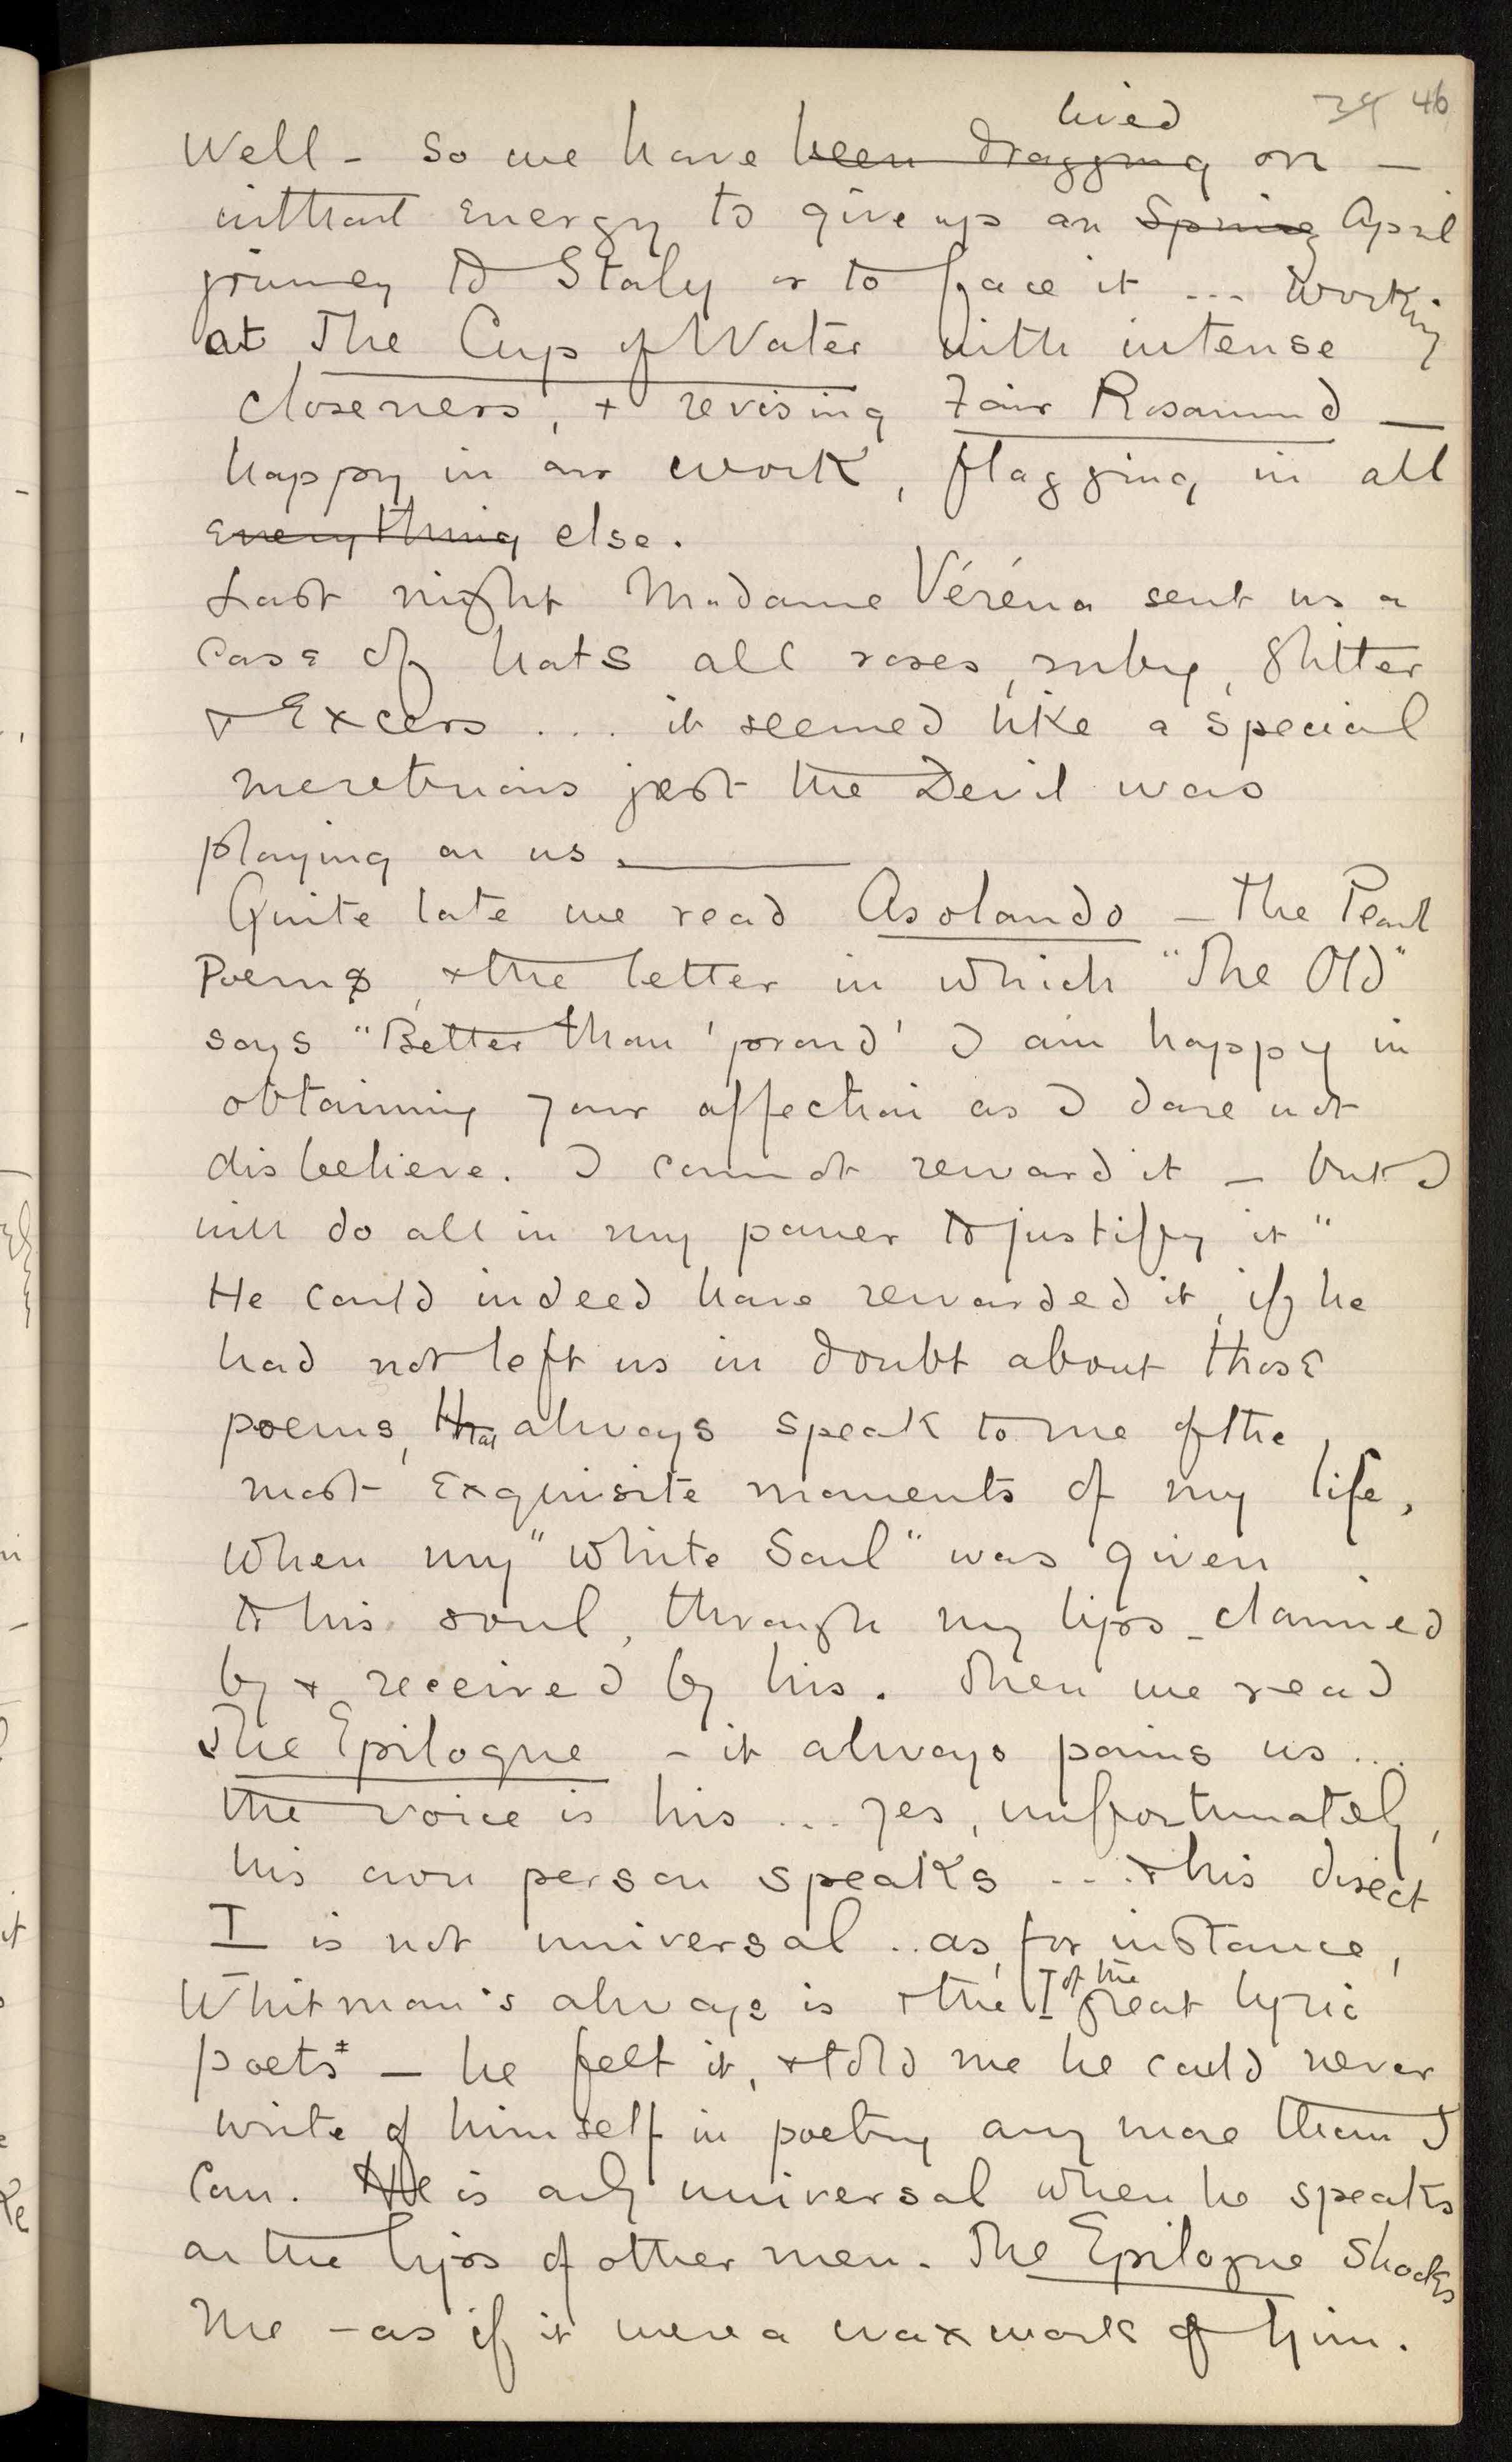 39 46
lived
Well - So we have been dragging on —
without energy to give up an Spring April
journey to Italy or to face it ... working
at The Cup of Water with intense
closeness, + revising Fair Rosamund —
happy in our work, flagging in all
everything else.
Last night Madame Véréna sent us a
case of hats all roses, ruby, glitter
+ Excess .... it seemed like a special
meretricious jest the Devil was
playing on us. —
Quite late we read Asolando — The Pearl
Poems, + the letter in which "The Old"
says "Better than 'proud' I am happy in
obtaining your affection as I dare not
disbelieve. I cannot reward it — but I
will do all in my power to justify it"
He could indeed have rewarded it, if he
had not left us in doubt about those
poems, that always speak to me of the
most exquisite moments of my life,
when my "white Soul" was given
to his soul, through my lips - claimed
by + received by his. Then we read
The Epilogue - it always pains us ...
the voice is his ... yes, unfortunately,
his own person speaks .... + his direct
I is not universal .. as, for instance,
Whitman's always is + the I of the great lyric
poets‡ — he felt it, + told me he could never
write of himself in poetry any more than I
can. He is only universal when he speaks
on the lips of other men. The Epilogue shocks
me - as if it were a waxwork of him.